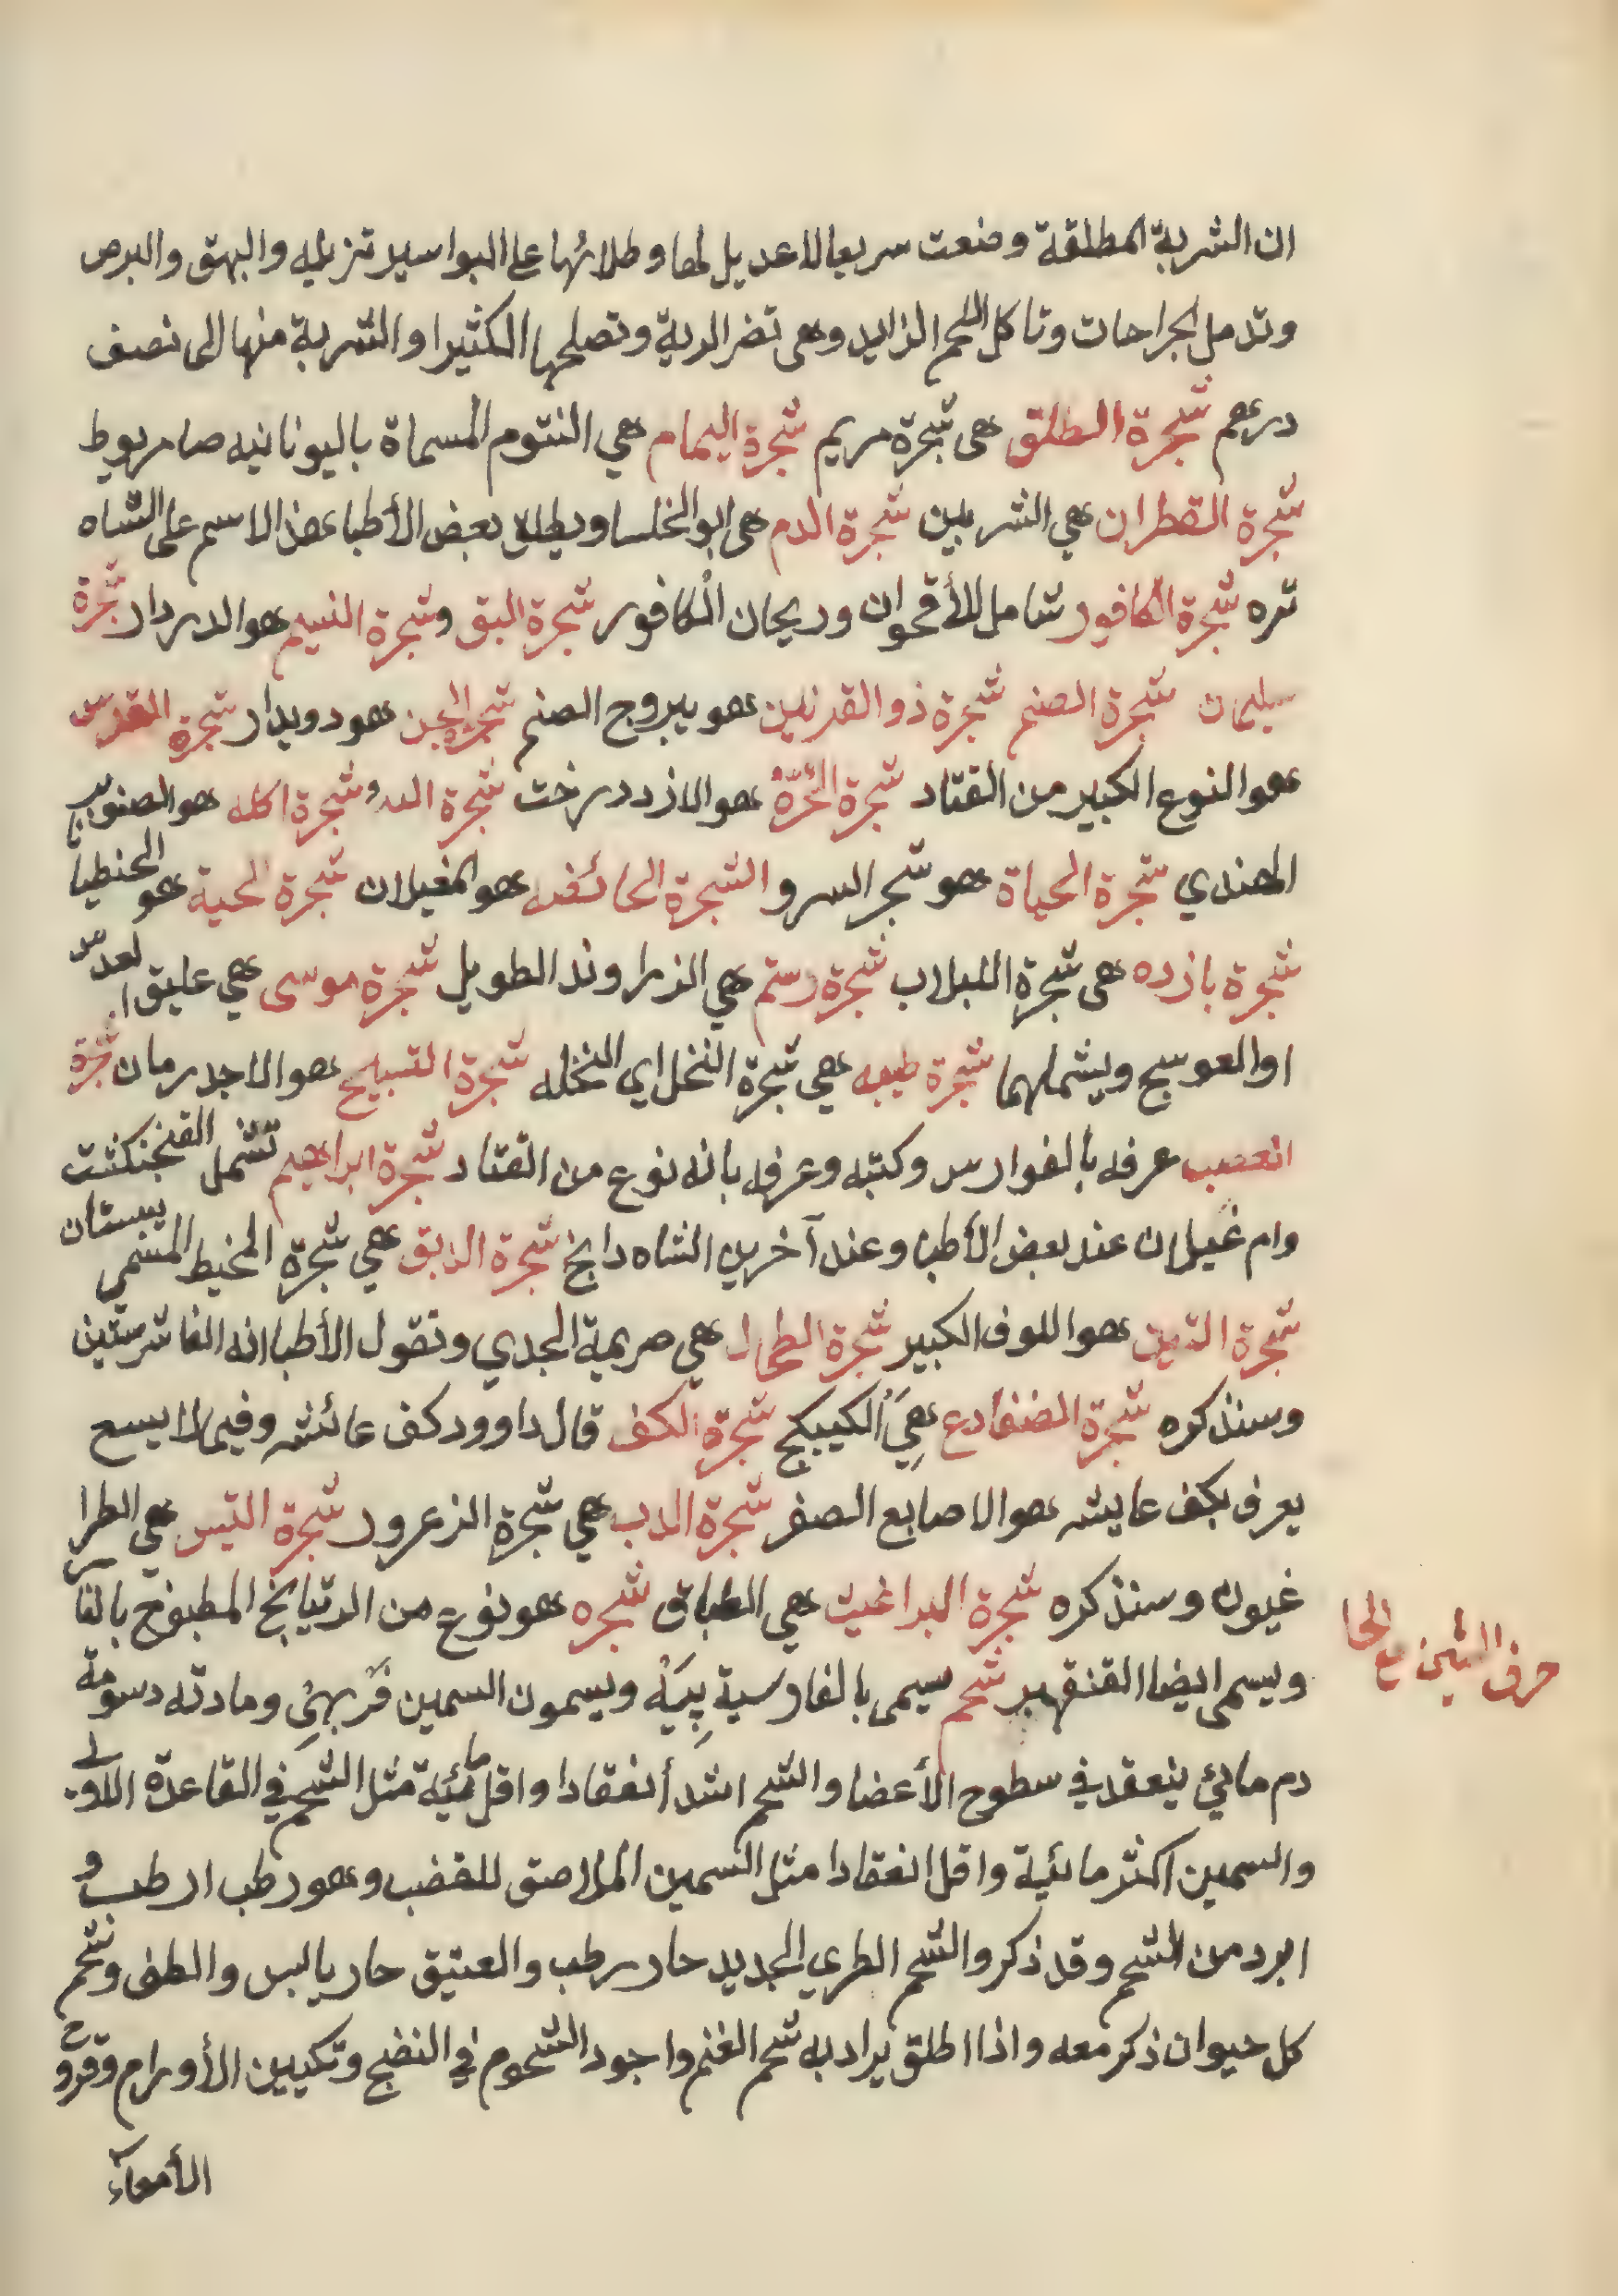 ان الشربة المطلقة وضعت سريعا لا عديل لها وطلائها على البواسير تزيله والبهق والبرص
وتدمل الجراحات وتاكل اللحم الزايد وهى تضر الرية وتصلحها الكثيرا والشربة منها الى نصف
درهم شجرة الطلق هى شجرة مريم شجرة اليمام هي النتوم المسماة باليونانيه صامريوط
شجرة القطران هي الشربين شجرة الدم هى ابو الخلسا ويطلق بعض الأطبا هذا الاسم على الشاه
تره شجرة الكافور شامل للأقحوان وريحان الكافور شجرة البق وشجرة النسيم هو الدردار شجرة
سليمان شجرة الصنم شجرة ذو القرنين هو يبروج الصنم شجرة الجن هو دويدار شجرة القدس
هو النوع الكبير من القتاد شجرة الحرّة هو الازددرخت شجرة الله وشجرة اكله هو الصنوبر
الهندي شجرة الحياة هو شجر السرو الشجرة الحائضه هو المغيلان شجرة الحية هو الجنطيانا
شجرة بازده هى شجرة اللبلاب شجرة رستم هي الزراوند الطويل شجرة موسى هي عليق العدس
او العوسج ويشملهما شجرة طيبه هي شجرة النخل اي النخله شجرة التسبيح هو الاجدرمان شجرة
عرفه بالفوارس وكتبه وعرفه بانه نوع من القتاد شجرة ابراهيم تشمل الفنجنكشت
وام غيلان عند بعض الأطبا وعند آخرين الشاه دابخ شجرة الدبق هي شجرة المخيط المسمى بسبستان
شجرة التنين هو اللوف الكبير شجرة الطحال هي صريمة الجدي وتقول الأطبا انه الفاشرستين
وسنذكره شجرة الضفادع هِيَ الكبيكج شجرة الكف قال داوود كف عائشه وفيما لا يسع
يعرف بكف عايشه هو الاصابع الصفر شجرة الدب هي شجرة الزعرور شجرة التيس هي الطرا
غيون وسنذكره شجرة البراغيث هي الطباق شجره هو نوع من الرتيانج المطبوخ بالنار
ويسمى ايضا القنقهر شحم سيمى بالفارسية پِيَهْ ويسمون السمين فَربهِي ومادته دسومة
دم مائي ينعقد في سطوح الأعضا والشحم اشد أنعقادا واقل مائية مثل الشحم في القاعدة اللاولى
والسمين اكثر مائية واقل انعقادا مثل السمين الملاصق للغضب وهو رطب ارطب و
ابرد من الشحم وقد ذكر والشحم الطري الجديد حار رطب والعتيق حار يابس والطف وشحم
كل حيوان ذكر معه واذا اطلق يراد به شحم الغنم واجود الشحوم في النضج وتكيين الأورام وقروح
الأمعآء
حرف الشين مع الحا